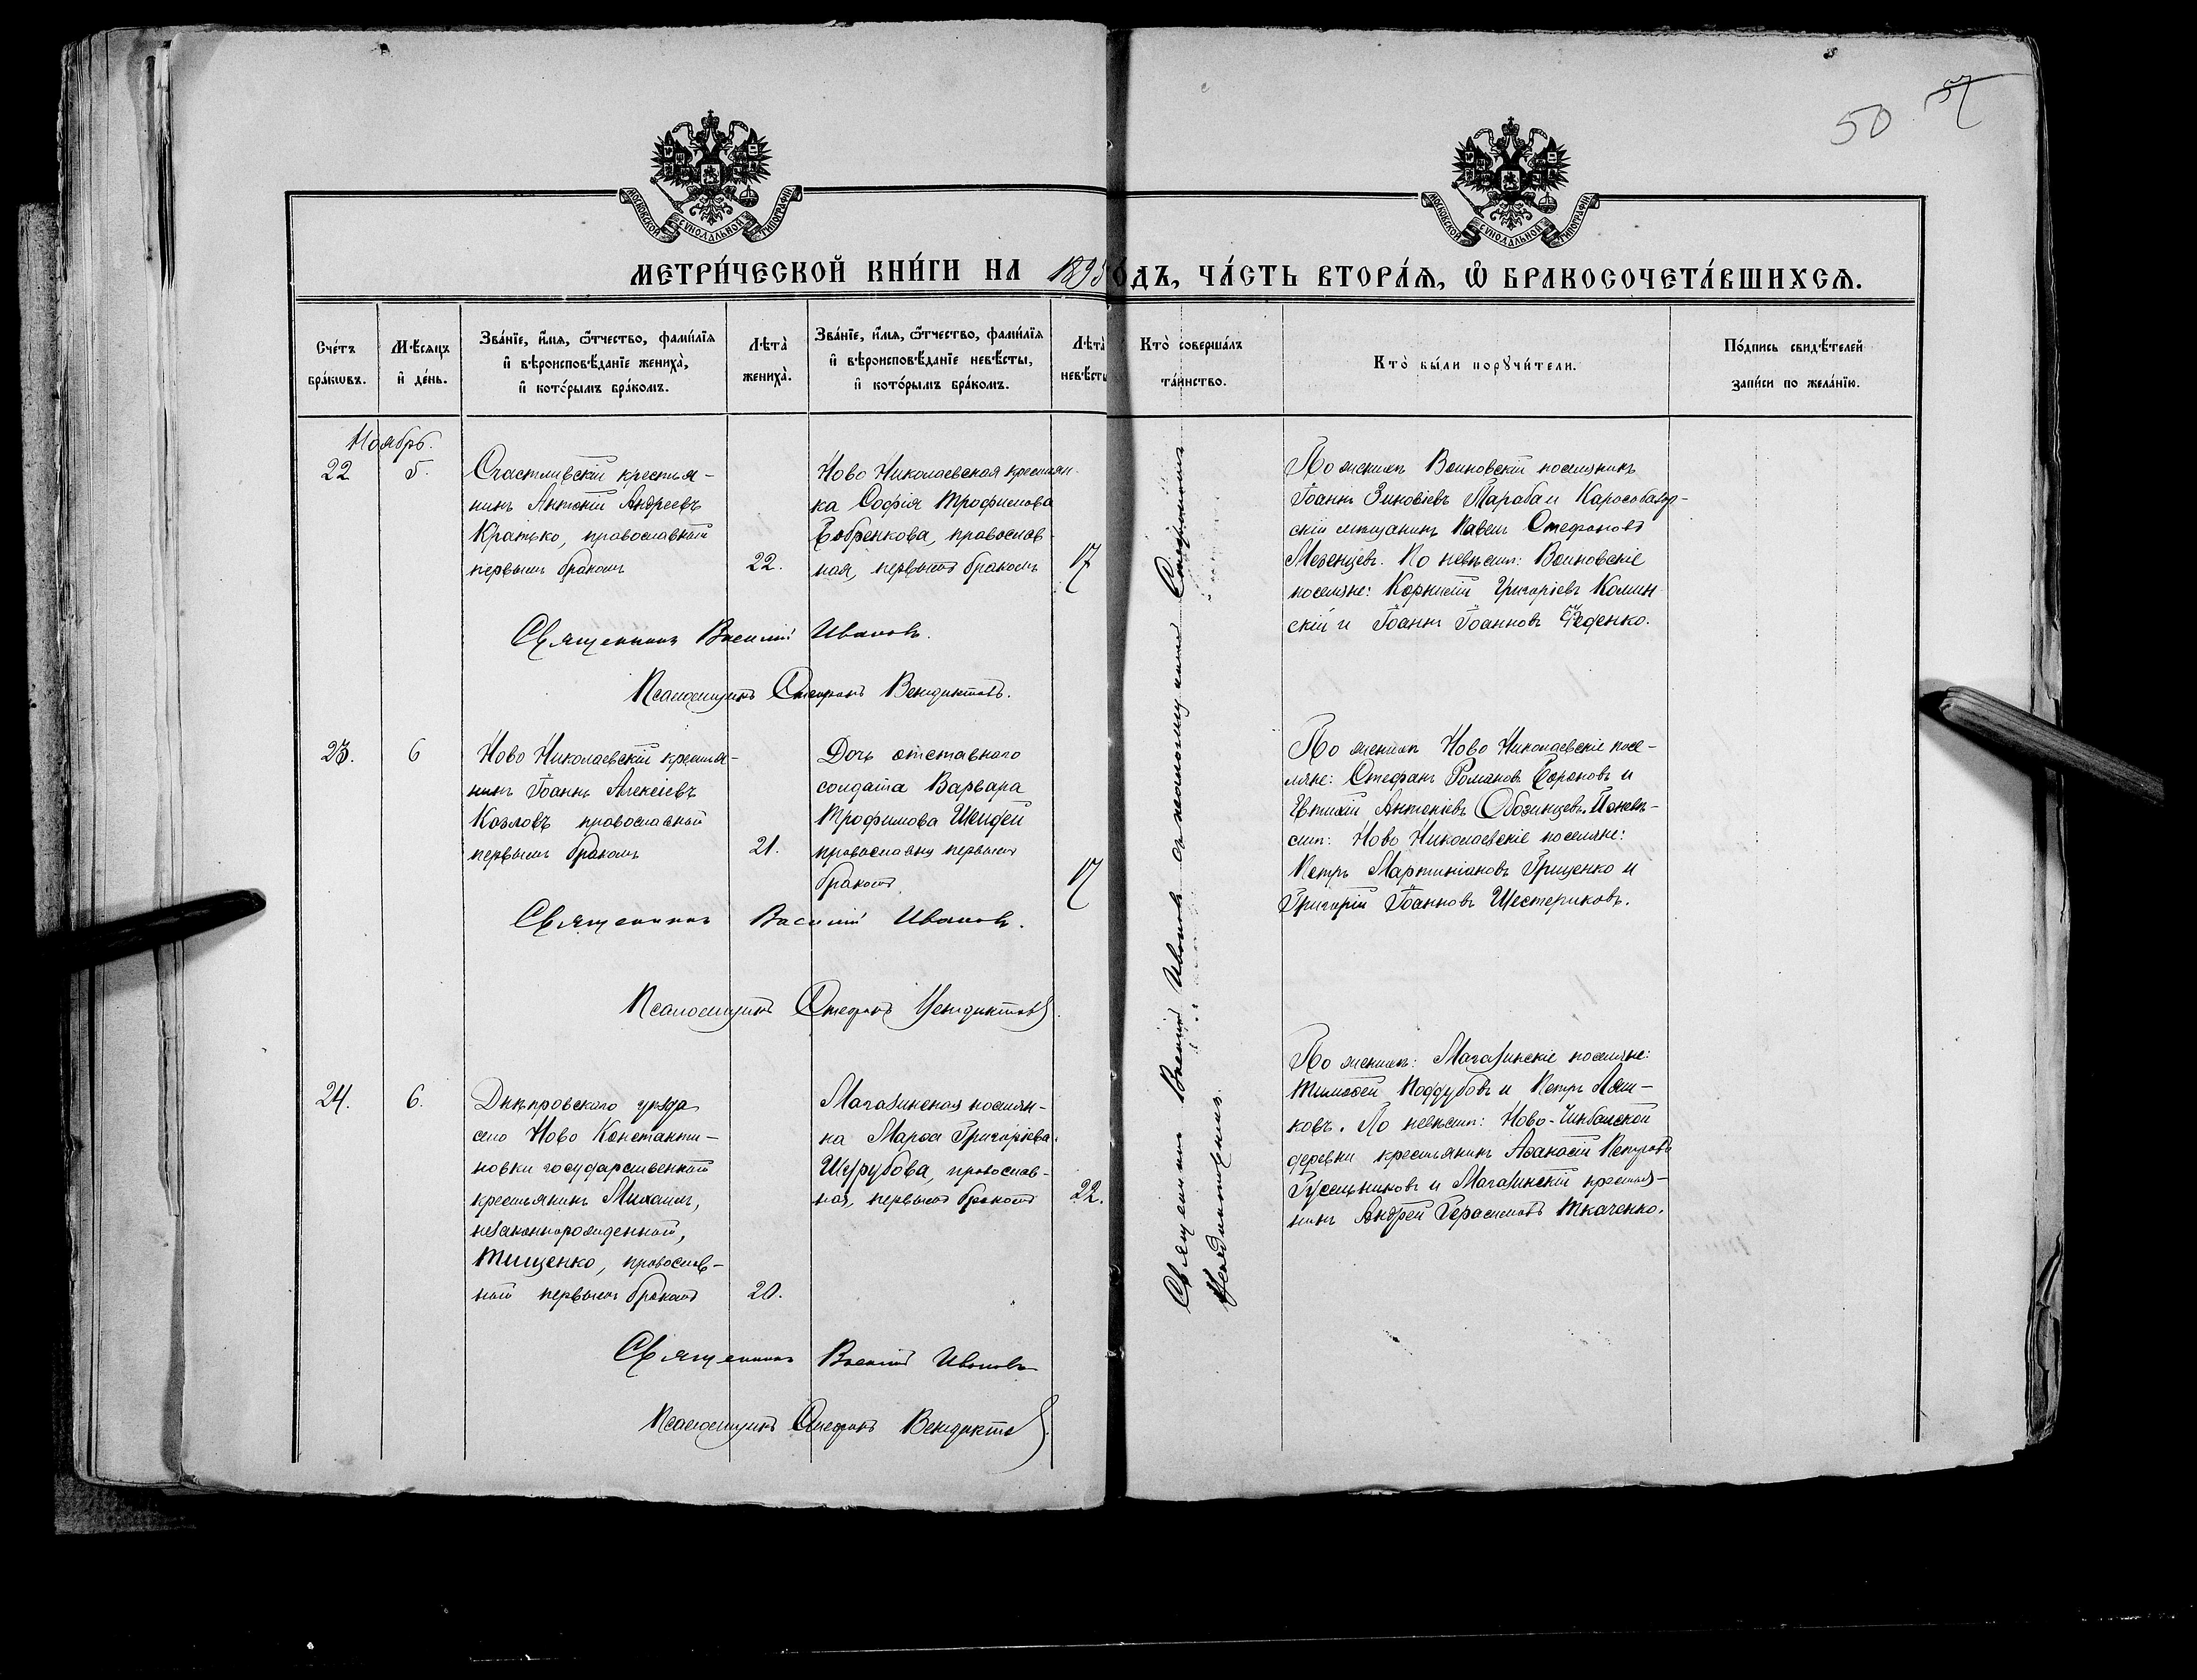 50 57
МОСКОВСКОЙ СѴНОДАЛЬНОЙ ТИПОГРАФІИ
МОСКОВСКОЙ СѴНОДАЛЬНОЙ ТИПОГРАФІИ
МЕТРИ́ЧЕСКОЙ КНИ́ГИ НА 1895 О́ДЪ, ЧА́СТЬ ВТОРА́Я, Ѡ҆ БРАКОСОЧЕТА́ВШИХСЯ.
Сче́тъ
бра́кѡвъ.
Мѣ́сяцъ
и҆ де́нь.
Зва́нїе, и҆́мя, ѻ҆́тчество, фами́лїя
и҆ вѣроисповѣ́данїе жениха̀,
и҆ кото́рымъ бра́комъ.
Лѣта̀
жениха̀.
Зва́нїе, и҆́мя, ѻ҆́тчество, фами́лїя
и҆ вѣроисповѣ́данїе невѣ́сты,
и҆ кото́рымъ бра́комъ.
Лѣта̀
невѣ́сты
Кто̀ соверша́лъ
та́инство.
Кто̀ бы́ли порꙋчи́тели.
По́дпись свидѣ́телей
за́писи по жела́нїю.
Ноябрь.
22 5.
Счастливскій крестья-
нинъ Антоній Андреевъ
Кратько, православный
первымъ бракомъ
22.
Ново Николаевская крестьян-
ка Софія Трофимова
Бобренкова, православ-
ная, первымъ бракомъ
17
По женихѣ Воиновскій поселянинъ
Іоаннъ Зиновіевъ Тараба и Карасобазар-
скій мѣщанинъ Павелъ Стефановъ
Мезенцевъ. По невѣстѣ: Воиновскіе
поселяне: Корнилій Григоріевъ Комин-
скій и Іоаннъ Іоанновъ Феденко.
Священникъ Василій Ивановъ.
Псаломщикъ Стефанъ Венедиктовъ.
23. 6
Ново Николаевскій крестья-
нинъ Іоаннъ Алексіевъ
Козловъ православный
первымъ бракомъ
21.
Дочь отставного
солдата Варвара
Трофимова Шелудей
православну первымъ
бракомъ.
17
По женихѣ Ново Николаевскіе посе-
ляне: Стефанъ Романовъ и
Евтихій Антоніевъ Обозинцевъ. По невѣ-
стѣ: Ново Николаевскіе поселяне:
Петръ Мартиніановъ Грищенко и
Григорій Іоанновъ Шестериковъ.
Священникъ Василій Ивановъ.
Псаломщикъ Стефанъ Венедиктовъ
24. 6.
Днѣпровскаго уѣзда
село Ново Константи-
новки государственный
крестьянинъ Михаилъ,
незаконнорожденный,
Тищенко, православ-
ный первымъ бракомъ
20.
Магазинская поселян-
ка Марѳа Григоріева
православ-
ная, первымъ бракомъ
22.
По женихѣ: Магазинскіе поселяне:
Тимоѳей Поддубовъ и Петръ Ляш-
ковъ. По невѣстѣ: Ново-Чимбайской
деревни крестьянинъ Аѳанасій Петровъ
Гусельниковъ и Магазинскій крестья-
нинъ Андрей Герасимовъ Ткаченко.
Священникъ Василій Ивановъ
Псаломщикъ Стефанъ Венедиктовъ
Священникъ Василій Ивановъ съ псаломщикомъ Стефаномъ
Венедиктовымъ.